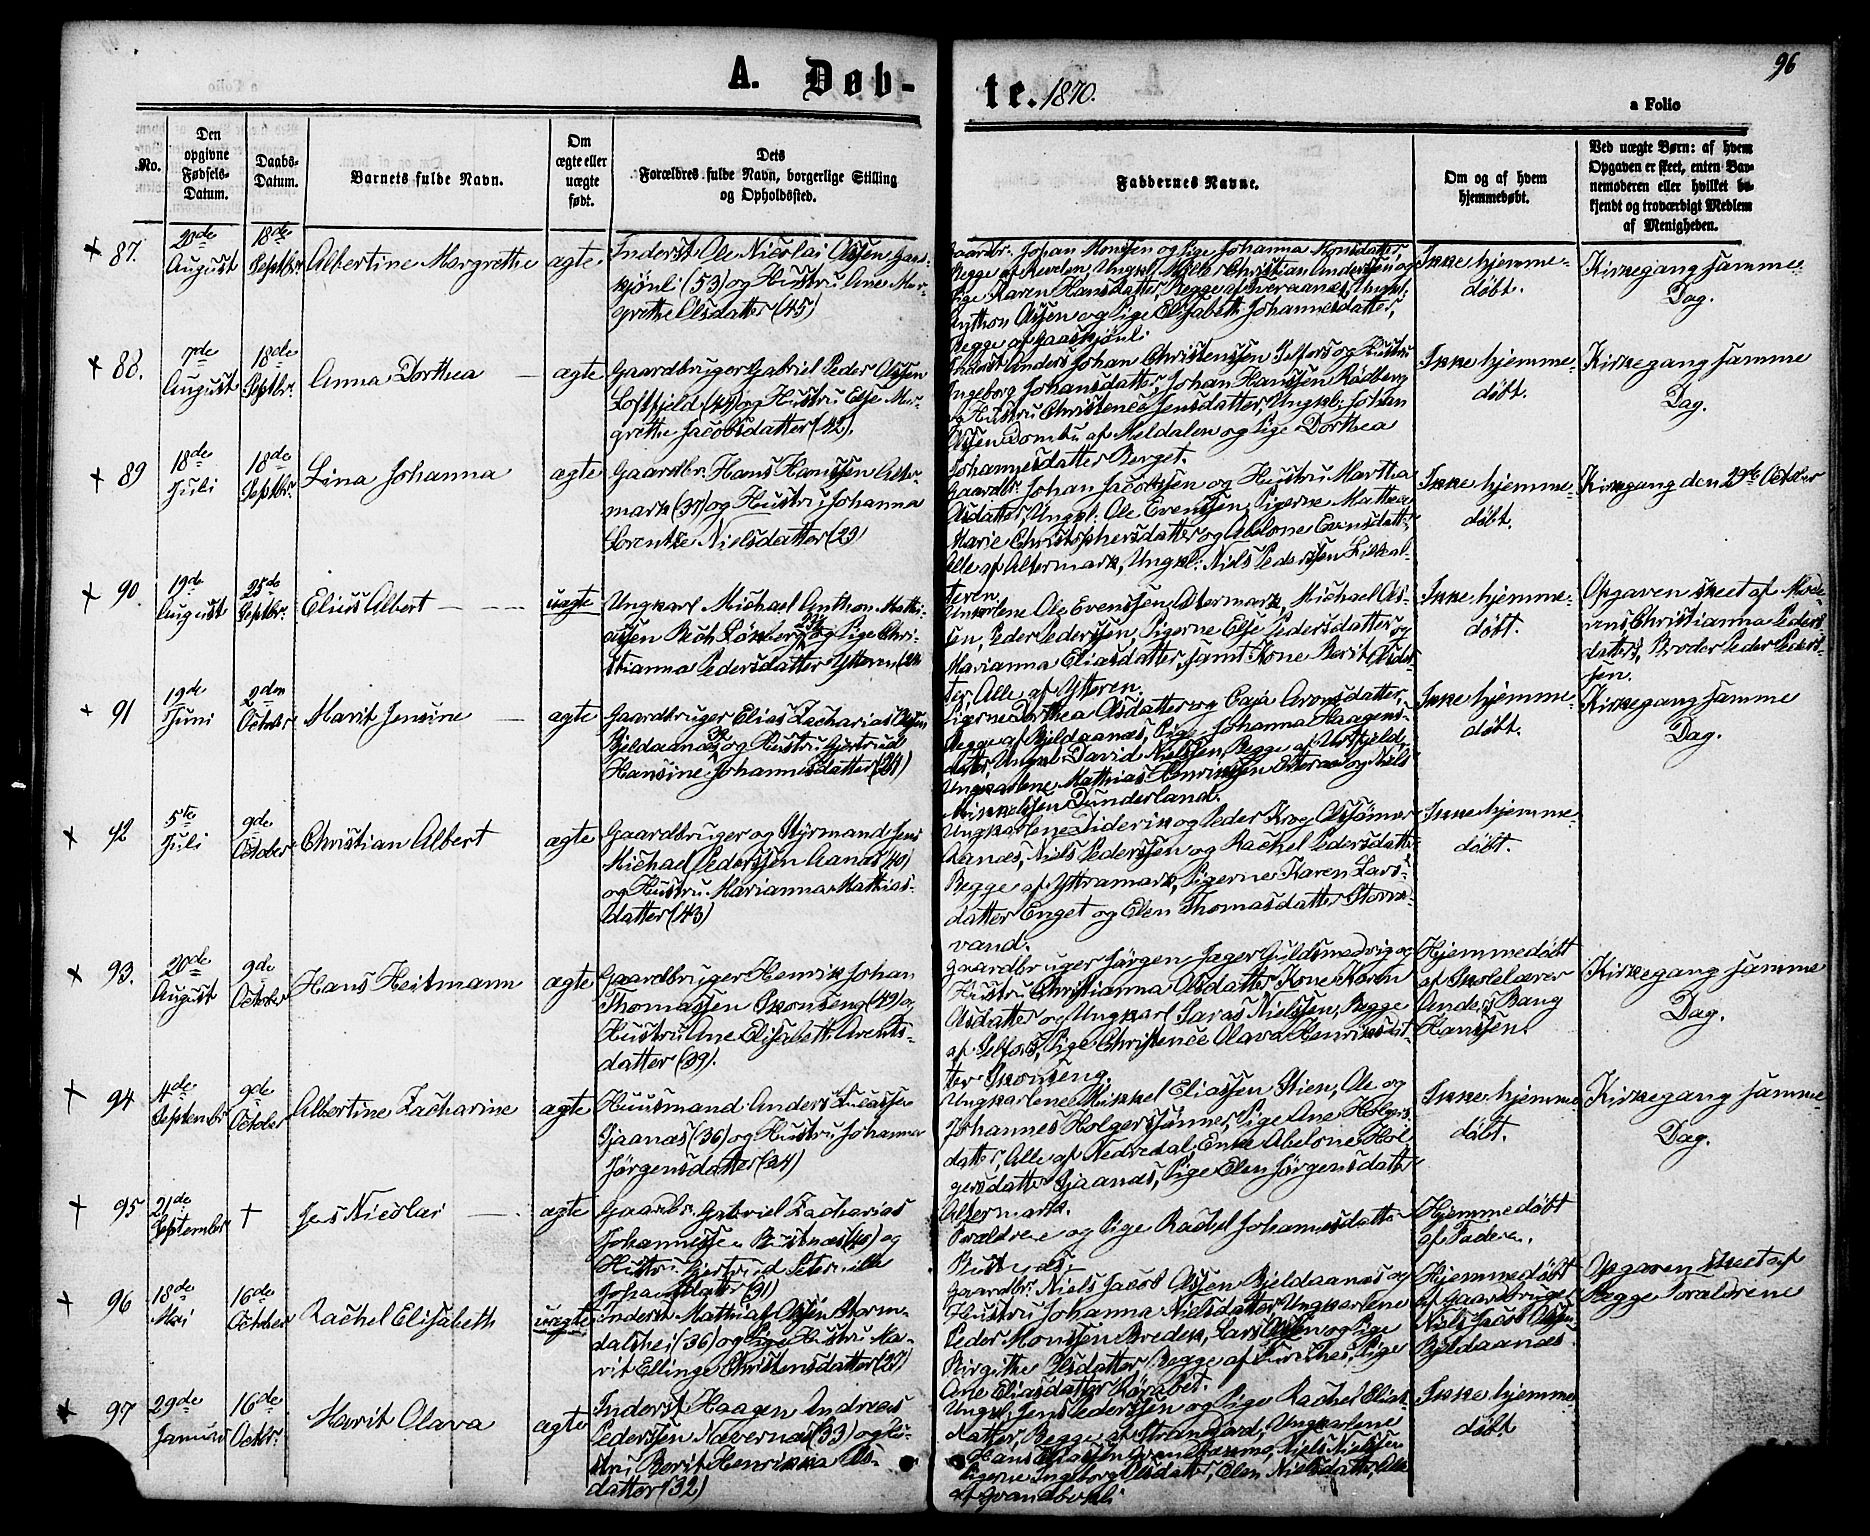 96
A. Døb-
te. 1870.
a Folio
No.
Den
opgivne
Fødsels-
Datum.
Daabs-
Datum.
Barnets fulde Navn.
Om
ægte eller
uægte
født.
Dets
Forældres fulde Navn, borgerlige Stilling
og Opholdssted.
Faddernes Navne.
Om og af hvem
hjemmedøbt.
Ved uægte Børn: af hvem
Opgaven er skeet, enten Bar-
nemoderen eller hvilket be-
kjendt og troværdigt Medlem
af Menigheden.
+ 87.
August
18de
Septbr
Albertine Margrethe
ægte
Inderst Ole Nicolai Olssen
(53) og Hustru Ane Mar-
grethe Olsdatter (45)
Gaardbr. Johan Monssen og Pige Johanna
Begge af Ungkl. Christian Anderssen og
Pige Karen Hansdatter, Begge af Ungkl.
Anthon Olssen og Pige Elisabeth Johannesdatter,
Begge af
Ikke hjemme-
døbt.
Kirkegang samme
Dag.
+ 88.
7de
August
18de
Septbr.
Anna Dorthea
ægte
Gaardbruger Gabriel Peder Olssen
og Hustru Else Mar-
grethe Jacobsdatter (42).
Inderst Anders Johan Christenssen Selfors og Hustru
Ingeborg Johansdatter, Johan Hanssen Rødberg
og Hustru Jensdatter, Ungkl. Johan
Olssen af Meldalen og Pige Dorthea
Johannesdatter Berget.
Ikke hjemme-
døbt.
Kirkegang samme
Dag.
+ 89
18de
Juli
18de
Septbr.
Lina Johanna
ægte
Gaardbr. Hans Hanssen Alter-
mark (37) og Hustru Johanna
Lorentze Nielsdatter (29)
Gaardbr. Johan Jacobssen og Hustru Martha
Olsdatter, Ungkl. Ole Evenssen, Pigerne Mathea
Marie Christophersdatter og Abelone Evensdatter,
Alle af Altermark, Ungkl. Niels Pederssen
Ikke hjemme-
døbt.
Kirkegang den 29de October
+ 90.
19de
August
25de
Septbr.
Elius Albert
uægte
Ungkarl Michael Anthon Mathi-
assen og Pige Chri-
stianna Pedersdatter Ytteren
Ungkarlene Ole Evenssen Altermark, Michael Ols-
sen, Peder Pederssen, Pigerne Else Pedersdatter og
Marianna Eliasdatter, samt Kone Berit Olsdat-
ter, Alle af Ytteren.
Ikke hjemme-
døbt.
Opgaven skeet af Mode-
rens Christianna Peders-
datters, Broder Peder Peders-
sen.
+ 91
19de
Juni
2den
October
Marit Jensine
ægte
Gaardbruger Elias Zacharias Olssen
Bjeldaanæs og Hustru Gjertrud
Hansine Johannesdatter
Pigerne Dorthea Olsdatter og Caja Aronsdatter,
Begge af Bjeldaanæs, Pige Johanna Haagens-
datter, Ungkl. David Nielssen, Begge af
Ungkarlene Mathias Henrikssen og Niels
Mikkelssen Dunderland.
Ikke hjemme-
døbt.
Kirkegang samme
Dag.
+ 42
5te
Juli
9de
October
Christian Albert
ægte
Gaardbruger og Styrmand Jens
Michael Pederssen Aanæs (40)
og Hustru Marianna Mathias-
datter (43)
Ungkarlene og Peder Krog Olssønner
Aanæs, Niels Pederssen og Rachel Pedersdatter
Begge af Yttramark, Pigerne Karen Lars-
datter Enget og Elen Thomasdatter Stor-
vand.
Ikke hjemme-
døbt.
+ 93.
20de
August
9de
October
Hans Heitmann
ægte
Gaardbruger Henrik Johan
Thomassen Skonseng (49) og
Hustru Ane Elisabeth Arents-
datter (39).
Gaardbruger Jørgen Jæger Guldsmedvig og
Hustru Christianna Olsdatter, Kone Karen
Olsdatter og Ungkarl Nielssen, Begge
af Selfors, Pige Olava Henriksdat-
ter Skonseng.
Hjemmedøbt
af Skolelærer
Anders Bang
Hanssen.
Kirkegang samme
Dag.
+ 94
4de
September
9de
October
Albertine Zacharine
ægte
Huusmand Anders
(36) og Hustru Johanna
Jørgensdatter (34)
Ungkarlene Mikkel Eliassen Stien, Ole og
Johannes Holgerssønner, Pige Ane Holgers-
datter, Alle af Nedredal, Enke Abelone Hol-
gersdatter Pige Elen Jørgensdatter
Altermark.
Ikke hjemme-
døbt.
Kirkegang samme
Dag.
+ 95
21de
September
+
Jens Nicolai
ægte
Gaardbr. Gabriel Zacharias
Johannessen Bustnæs (40) og
Hustru Gjertrud
Johansdatter (31)
Forældrene og Pige Rachel Johannesdatter
Bustnæs.
Hjemmedøbt
af Faderen.
+ 96
18de
Mai
16de
October
Rachel Elisabeth
uægte
Inderst Mathias Olssen Storm-
dalshei (36) og Pige Ma-
rit Ellinge Christensdatter (27)
Gaardbr. Niels Jacob Olssen Bjeldaanæs og
Hustru Johanna Nielsdatter, Ungkarlene
Peder Monssen Bredek, Lars Olssen og Pige
Birgithe Olsdatter, Begge af Pige
Ane Eliasdatter
Hjemmedøbt
af Gaardbruger
Niels Jacob Olssen
Bjeldaanæs
Opgaven skeet af
Begge Forældrene
97
29de
Januar
16de
Octbr.
Marit Olava
ægte
Inderst Haagen Andreas
Pederssen Nævernæs (33) og Hu-
stru Berit Henrikka Ols-
datter (32)
Ungkl. Jens Pederssen og Pige Rachel Elias-
datter, Begge af Strandjord, Ungkarlene
Hans Eliassen Niels Nielssen
Pigerne Ingeborg Olsdatter, Elen Nielsdatter, Alle
af
Ikke hjemme-
døbt